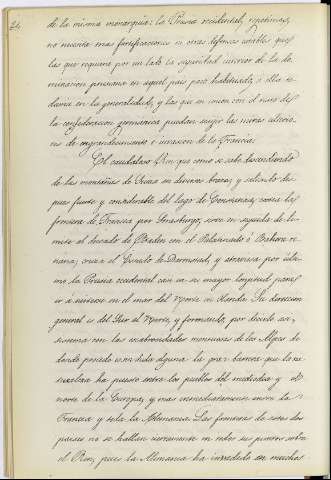 24
de la misma monarquia: la Prusia occidental, repetimos,
no necesita mas fortificaciones ni otras defensas notables que
las que requiere por un lado la seguridad interior de la do-
minacion prusiana en aquel pais poco habituado, á ella to-
davia en la generalidad, y las que en union con el resto de
la confederacion germanica puedan exigir las miras ulterio-
res de engrandecimiento é invasion de la Francia.
El caudaloso Rin que como se sabe descendiendo
de las montañas de Suiza en diversos brazos, y saliendo des-
pues fuerte y considerable del lago de Constanza, costea las
fronteras de Francia por Strasburgo, sirve en seguida de li-
mite al ducado de Baden con el Palatinado ó Baviera re-
nana; cruza el Estado de Darmstad, y atraviesa por ulti-
mo la Prusia occidental casi en su mayor longitud para
ir á meterse en el mar del Norte en Holanda. Su direccion
general es del Sur al Norte, y formando, por decirlo asi,
sistema con las escabrosidades montuosas de los Alpes de
donde procede es sin duda alguna la gran barrera que la na-
turaleza ha puesto entre los pueblos del mediodia y el
norte de la Europa, y mas inmediatamente entre la
Francia y toda la Alemania. Las fronteras de estos dos
paises no se hallan ciertamente en todos sus puntos sobre
el Rin, pues la Alemania ha invadido en muchos